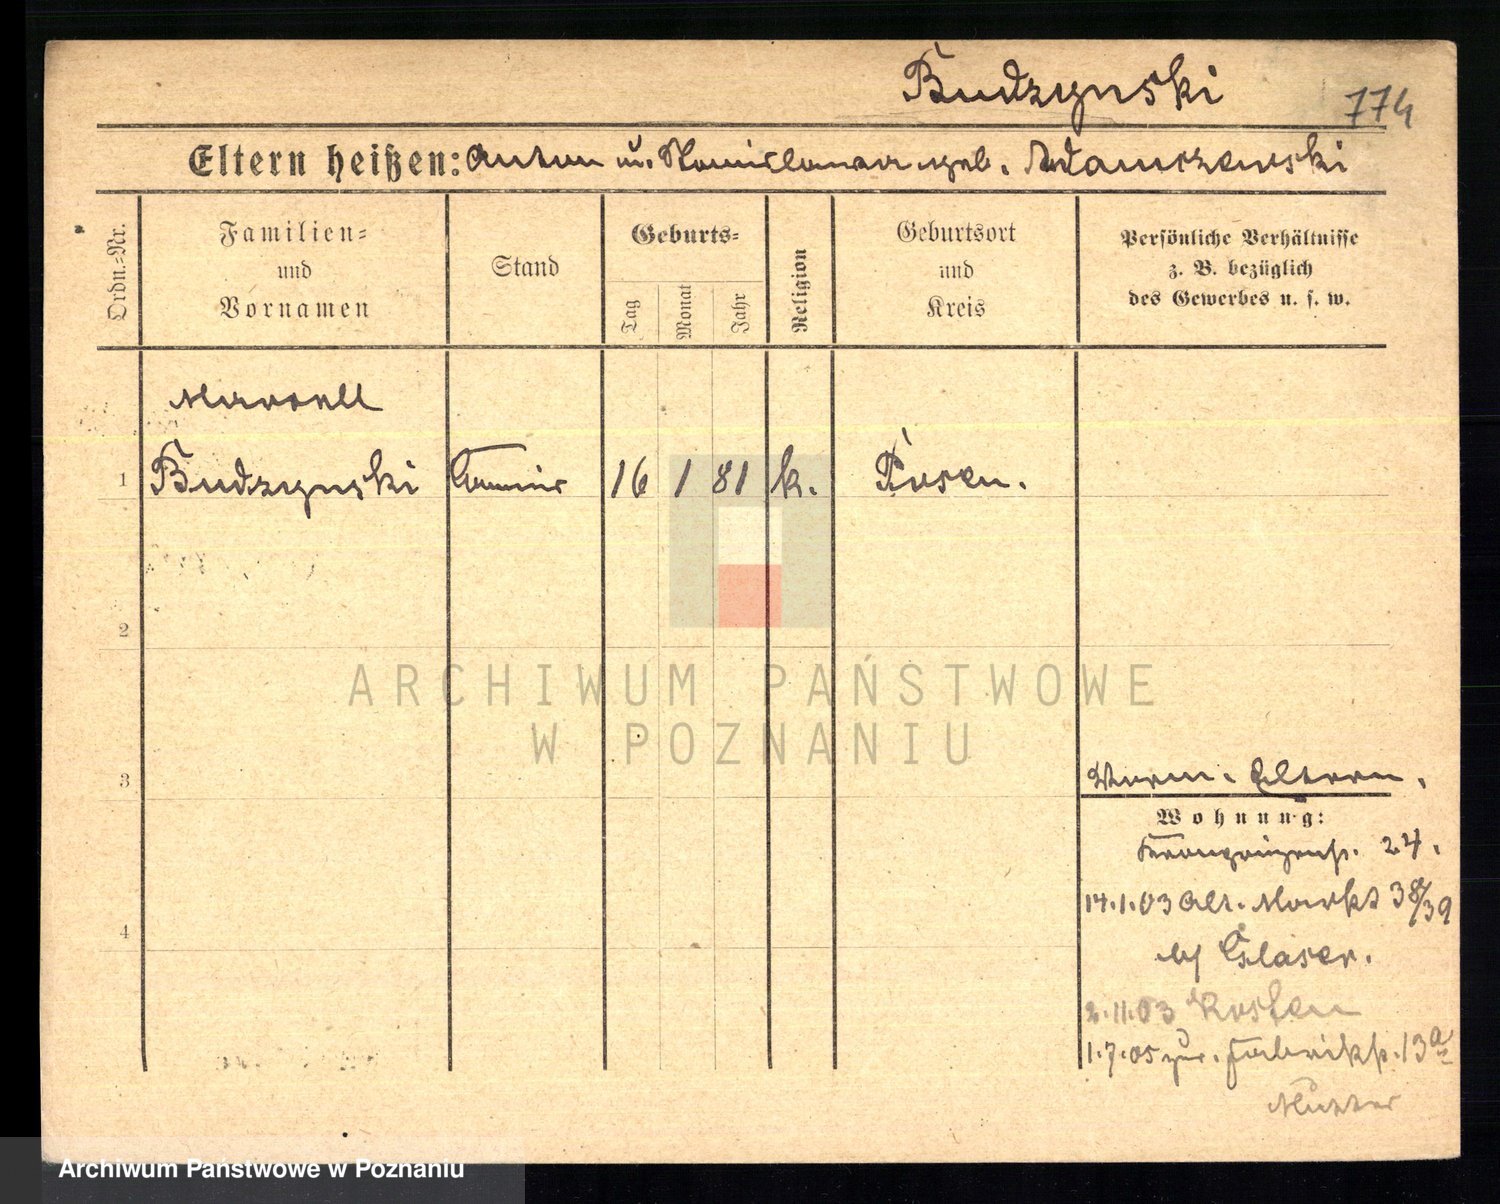 Budzynski
774
Eltern heißen: Anton u. Stanislawa geb. Adamczewski
Ordn.-Nr.
Familien-
und
Vornamen
Stand
Geburts-
Tag
Monat
Jahr
Religion
Geburtsort
und
Kreis
Persönliche Verhältnisse
z. B. bezüglich
des Gewerbes u. s. w.
Marcell
1 Budzynski Commis 16 1 81 k. Posen.
2
ARCHIWUM PAŃSTWOWE
W POZNANIU
3
Eltern.
Wohnung:
24.
14.1.03 Alt. Markt 38/39
b/ Glaser.
2.11.03 Kosten
1.7.05 zur. Fabrikstr. 13a
Mutter
4
Archiwum Państwowe w Poznaniu